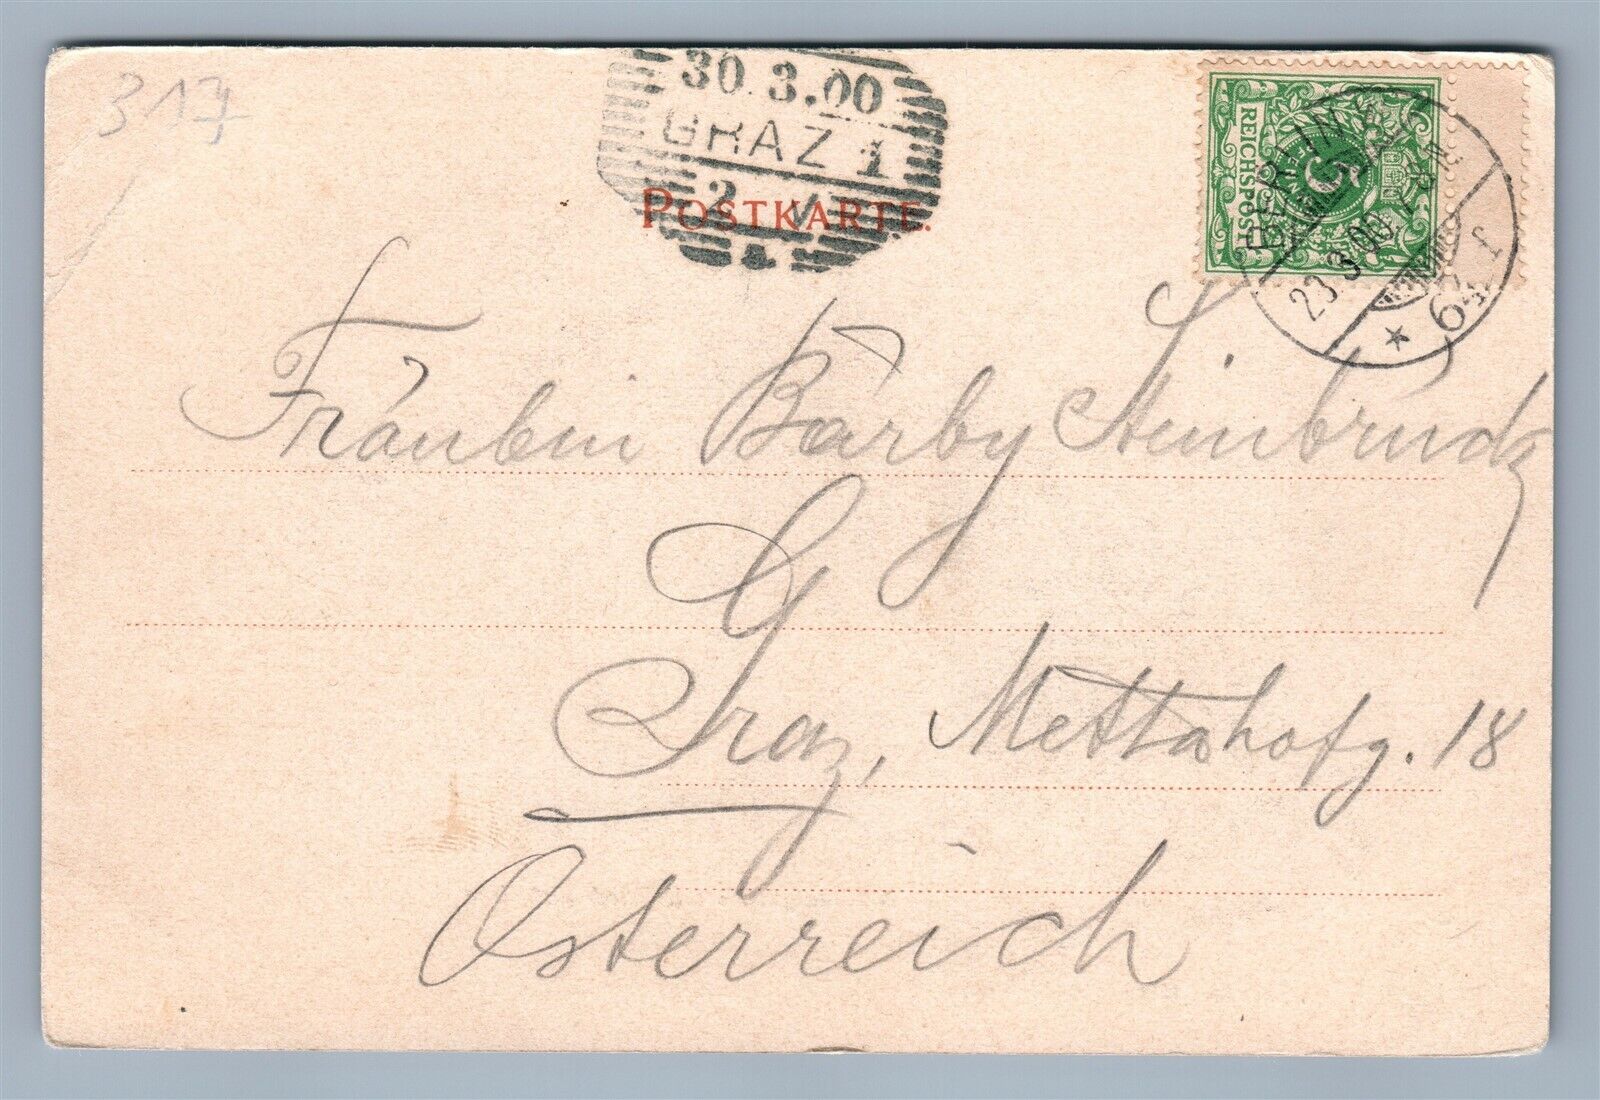 317
30.3.00
GRAZ 1
2 V
POSTKARTE.
REICHSPOST
5
BERLIN
23.3.00
64 f
Fräulein Bärby Steinbrück
Graz, Mettahofg. 18
Österreich